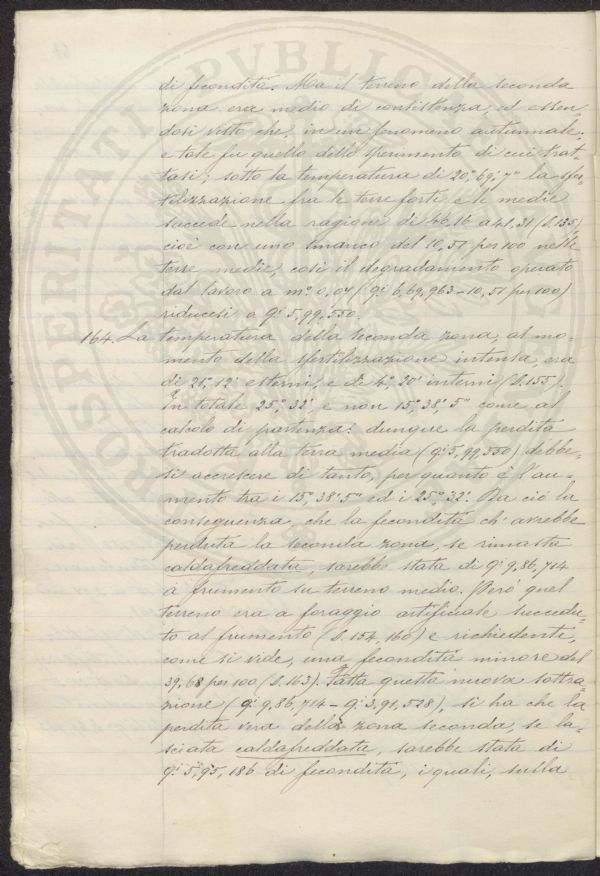 di fecondità. Ma il terreno della seconda
zona era medio di consistenza, ed essen-
dosi visto che, in un fenomeno autunnale,
e tale fu quello dello sperimento di cui trat-
tasi, sotto la temperatura di 20°, 69', 7" la sfer-
tilizzazione fra le terre forti e le medie
succede nella ragione di 46,16 a 41,31 (§. 135)
cioè con uno smanco del 10,51 per 100 nelle
terre medie, così il degradamento operato
dal lavoro a m.° 0,04 (q.i 6,69,963 - 10,51 per 100)
riducesi a q.i 5,99,550.
164. La temperatura della seconda zona, al mo-
mento della sfertilizzazione intensa, era
di 21°, 12' esterni, e di 4°, 20' interni (§. 155).
In totale 25°, 32', e non 15°, 38', 5" come al
calcolo di partenza: dunque la perdita
tradotta alla terra media (q.i 5,99,550) debbe-
si accrescere di tanto, per quanto è l'au-
mento tra i 15°, 38', 5" ed i 25°, 32'. Da ciò la
conseguenza, che la fecondità ch' avrebbe
perduta la seconda zona, se rimasta
caldafreddata, sarebbe stata di q.i 9,86,714
a frumento su terreno medio. Però quel
terreno era a foraggio artificiale succedu-
to al frumento (§. 154, 160) e richiedente,
come si vide, una fecondità minore del
39,68 per 100 (§. 163). Fatta questa nuova sottra-
zione (q.i 9,86,714 - q.i 3,91,528), si ha che la
perdita vera della zona seconda, se la-
sciata caldafreddata, sarebbe stata di
q.i 5,95,186 di fecondità, i quali, sulla
PROSPERITATI PVBLICAE